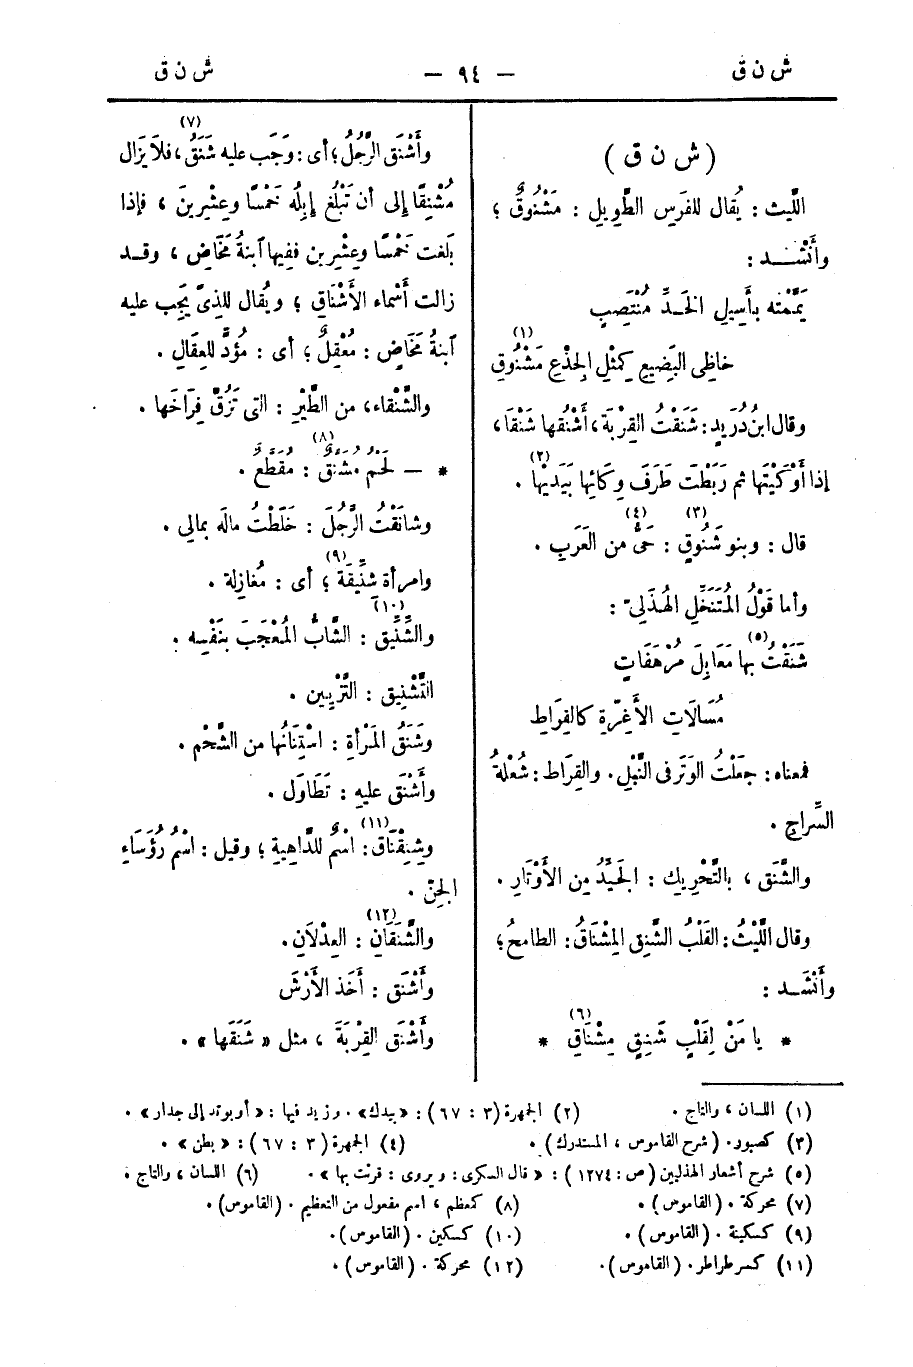 ش ن ق
— ٩٤ —
ش ن ق
( ش ن ق )
اللَّيث : يُقال للفَرَس الطَّوِيلِ : مَشْنُوقٌ ؛
وأَنْشَـــد :
يَمَّمْته بأَسِيلِ الخَــدِّ مُنْتَصِبٍ
خاظِى البَضِيعِ كمِثْلِ الجِذْعِ مَشْنُوقِ (١)
وقال ابنُ دُرَيدٍ : شَنَقْتُ القِرْبَةَ ، أَشْنُقها شَنْقًا ،
إذا أَوْكَيْتَها ثم رَبَطْتَ طَرَفَ وِكَائِها بيَدَيْها (٢) .
قال : وبنو شَنُوقٍ (٣) : حَىٌّ (٤) من العَرَبِ .
وأما قَوْلُ المُتَنَخِّلِ الهُذَلِىّ :
شَنَقْتُ (٥) بها مَعَابِلَ مُرْهَفَاتٍ
مُسَالَاتِ الأَغِرَّةِ كالقِرَاطِ
فمعناه : جعَلْتُ الوَتَر فى النَّبْلِ . والقِرَاط : شُعْلَةُ
السِّراجِ .
والشَّنَق ، بالتَّحْرِيك : الجَيِّدُ مِن الأَوْتَارِ .
وقال اللَّيْثُ : القَلْبُ الشَّنِق المِشْنَاقُ : الطامحُ ؛
وأَنْشَــد :
* يا مَنْ لِقَلْبٍ شَنِقٍ مِشْنَاقِ (٦) *
وأَشْنَق الرَّجُلُ ؛ أى : وَجَب عليه شَنَقٌ (٧) ، فلَا يَزَال
مُشْنِقًا إلى أن تَبْلُغ إبِلُه خَمْسًا وعِشْرِينَ ، فإذا
بلَغت خَمْسًا وعِشْرِين ففيها ٱبنةُ مَخَاضٍ ، وقــد
زالت أَسْماء الأَشْنَاقِ ؛ ويُقال للذِىّ يَجِب عليه
ٱبنةُ مَخَاضٍ : مُعْقِلٌ ؛ أى : مُؤَدٍّ للعِقَالِ .
والشَّنْقاء ، من الطَّيْرِ : التى تَزُقّ فِرَاخَها .
* — لَحْمٌ مُشَنَّقٌ (٨) : مُقَطَّعٌ .
وشانَقْتُ الرَّجُلَ : خَلَطْتُ مالَه بمالِى .
وامرأة شِنِّيقَة (٩) ؛ أى : مُغازِلة .
والشِّنِّيق (١٠) : الشَّابُّ المُعْجَبَ بنَفْسِه .
التَّشْنِيق : التَّزْيِين .
وشَنَقُ المَرْأَةِ : اسْتِنَانُها من الشَّحْمِ .
وأَشْنَق عليه : تَطَاوَل .
وشِنِقْنَاق (١١) : اسْمٌ للدَّاهِيةِ ؛ وقيل : اسْمُ رُؤَسَاءِ
الجِنّ .
والشَّنَقَانِ (١٢) : العِدْلَانِ .
وأَشْنَق : أَخَذ الأَرْشَ
وأَشْنَق القِرْبَةَ ، مثل « شَنَقَها » .
(١) اللسان ، والتاج . (٢) الجمهرة (٣ : ٦٧) : «بيدك» . وزيد فيها : « أو بوتد إلى جدار » .
(٣) كصبور . (شرح القاموس ، المستدرك) . (٤) الجمهرة (٣ : ٦٧) : « بطن » .
(٥) شرح أشعار الهذليين (ص : ١٢٧٤) : « قال السكرى : ويروى : قرنت بها » . (٦) اللسان ، والتاج .
(٧) محركة . (القاموس) . (٨) كمعظم ، اسم مفعول من التعظيم . (القاموس) .
(٩) كسكينة . (القاموس) . (١٠) كسكين . (القاموس) .
(١١) كسرطراط . (القاموس) . (١٢) محركة . (القاموس) .